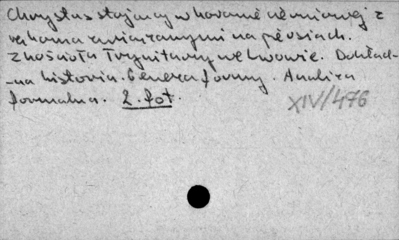 Chrystus stojący w koronie cierniowej z
rękoma związanymi na piersiach.
Z kościoła Trynitarzy we Lwowie. Dokład-
-na historia. Geneza formy. Analiza
formalna. 2. fot.
XIV/476